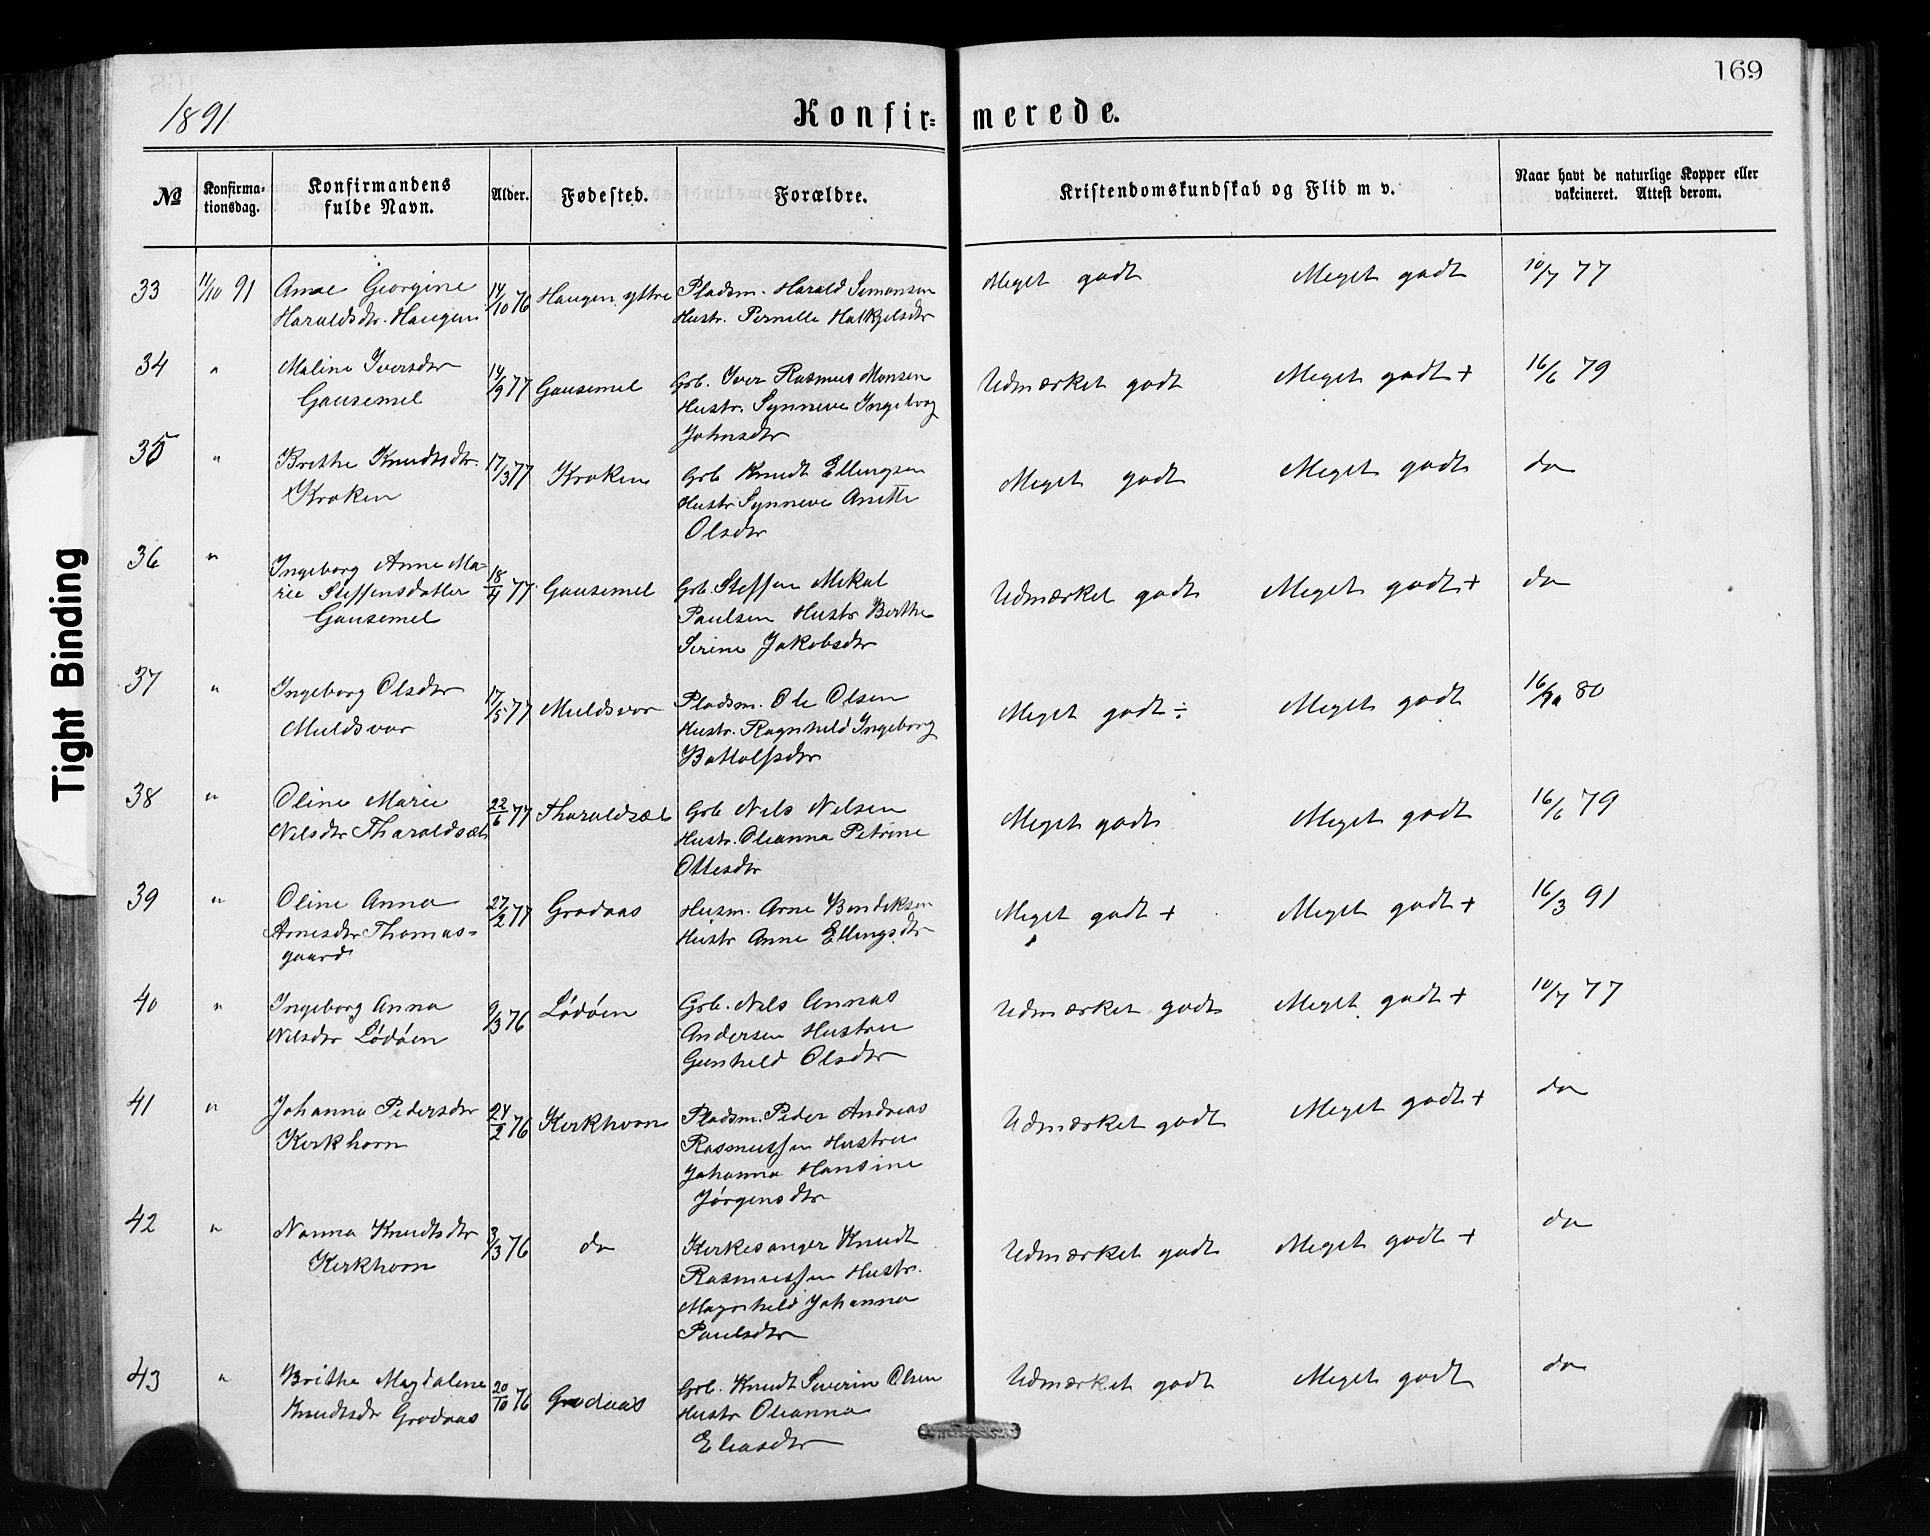 169
1891
Konfir=merede.
№
Konfirma-
tionsdag.
Konfirmandens
fulde Navn.
Alder.
Fødested.
Forældre.
Kristendomskundskab og Flid m v.
Naar havt de naturlige Kopper eller
vakcineret. Attest derom.
33 11/10 91 Anne Georgine 14/10 76 Haugen yttre Pladsm. Harald Simonsen Meget godt Meget godt 10/7 77
Haraldsdr. Haugen Hustr. Pernille Halkjelsdtr
34 " Maline Iversdtr 14/9 77 Gausemel Grb. Iver Rasmus Monsen Udmærket godt Meget godt + 16/6 79
Gausemel Hustr. Synneve Ingeborg
Johnsdtr
35 " Brithe Knudtsdtr. 17/3 77 Kroken Grb Knudt Ellingsen Meget godt Meget godt do
Kroken Hustr Synneve Anette
Olsdtr
36 " Ingeborg Anne Ma- 18/4 77 Gausemel Grb. Steffen Mikal Udmærket godt Meget godt + do
rie Steffensdatter Paulsen Hustr Berthe
Gausemel Sirine Jakobsdtr
37 " Ingeborg Olsdtr 17/5 77 Muldsvor Pladsm. Ole Olsen Meget godt ÷ Meget godt 80
Muldsvor Hustr. Ragnhild Ingeborg
Bottolfsdtr
38 " Oline Marie 22/6 77 Tharaldsæt Grb Nils Nilsen Meget godt Meget godt 16/6 79
Nilsdtr Tharaldsæt Hustr. Oleanna Petrine
Ottesdtr
39 " Oline Anna 27/2 77 Grodaas Husm. Arne Bendiksen Meget godt + Meget godt + 16/3 91
Arnesdtr Thomas- Hustr Anne Ellingsdtr
gaard
40 " Ingeborg Anna 9/3 76 Lødøen Grb. Nils Annas Udmærket godt Meget godt + 10/7 77
Nilsdtr Lødøen Andersen Hustru
Gunhild Olsdtr
41 " Johanna Pedersdtr 24/2 76 Kirkhorn Pladsm. Peder Andreas Udmærket godt Meget godt + do
Kirkhorn Rasmussen Hustru
Johanna Hansine
Jørgensdtr
42 " Nanna Knudtsdtr 3/3 76 do Kirkesanger Knudt Udmærket godt Meget godt + do
Kirkhorn Rasmussen Hustr.
Magnhild Johanna
Paulsdtr
43 " Brithe Magdalene 20/10 76 Grodaas Grb. Knudt Severin Olsen Udmærket godt Meget godt do
Knudtsdtr Grodaas Hustr Oleanna
Eliasdtr
Tight Binding